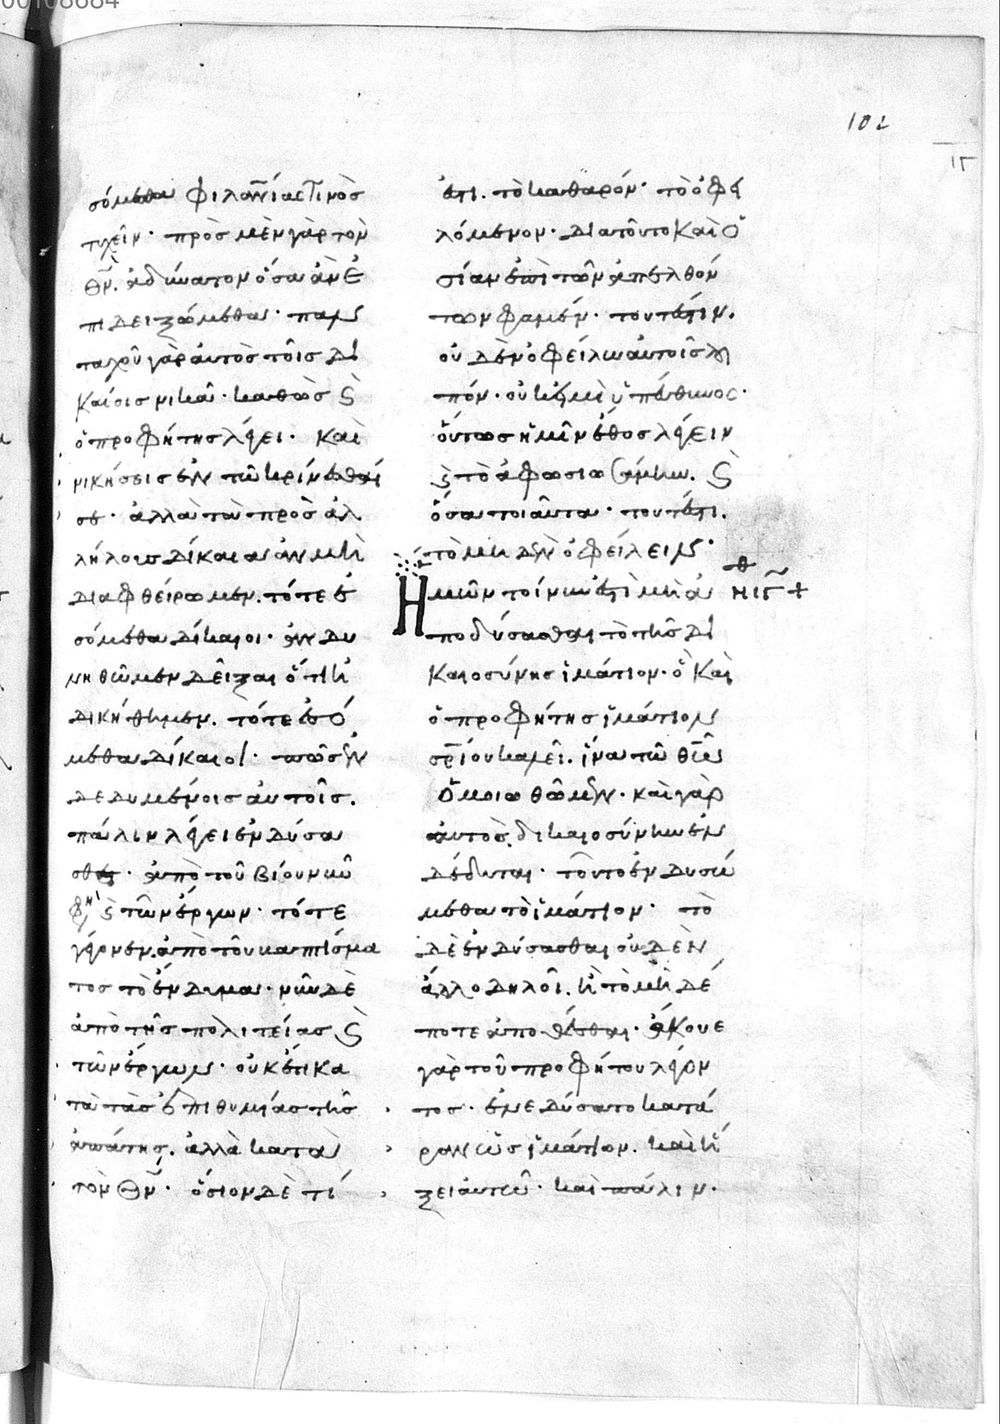 00108684
102
σόμεθα φιλανίας τινὸς
τυχεῖν· πρὸς μὲν γὰρ τὸν
θν̄. ἀδύνατον ὅσα ἂν ἐ
πιδειξώμεθα· παν
ταχοῦ γὰρ αὐτὸς τοῖς δι
καίοις νικᾶ· καθὼς ϛ̀
ὁ προφήτης λέγει· καὶ
νικήσεις ἐν τῶ κρίνεσθαί
σε· ἀλλὰ τὰ πρὸς ἀλ
λήλους δίκαια ἂν μὴ
διαφθείρωμεν. τότε ἐ
σόμεθα δίκαιοι· ἂν δυ
νηθῶμεν δεῖξαι ὅτι ἠ
δικήθημεν. τότε ἐσό
μεθα δίκαιοι· πῶς ἐν
δεδυμένοις αὐτοῖς.
πάλιν λέγει ἐνδύσα
σθαι· ἀπὸ τοῦ βίου νῦ
φη, ϛ̀ τῶν ἔργων· τότε
γέγονεν ἀπὸ τοῦ βαπτίσμα
τος τὸ ἔνδυμα· νῦν δὲ
ἀπὸ τῆς πολιτείας ϛ̀
τῶν ἔργων· οὐκέτι κα
τὰ τὰς ἐπιθυμίας τῆς
ἀπάτης. ἀλλὰ κατὰ
τὸν θν̄· ὅσιον δὲ τί
ἐστι. τὸ καθαρόν· τὸ ὀφει
λόμενον· διὰ τοῦτο καὶ ὁ
σίαν ἐπὶ τῶν ἀπελθόν
των φαμέν· τουτέστιν.
οὐδὲν ὀφείλω αὐτοῖς λοι
πόν· οὐκ εἰμὶ ὑπεύθυνος·
οὕτως ἡμῖν ἔθος λέγειν
ϛ̀ τὸ ἀφωσιωσάμην. ϛ̀
ὅσα τοιαῦτα· τουτέστι.
τὸ μηδὲν ὀφείλειν·
Ημῶν τοίνυν ἐστὶ μὴ ἀ
ποδύσασθαι τὸ τῆς δι
καιοσύνης ἱμάτιον· ὃ καὶ
ὁ προφήτης ἱμάτιον
σρ̄ίου καλεῖ. ἵνα τῶ θῶ
ὁμοιωθῶμεν· καὶ γὰρ
αὐτὸς δικαιοσύνην ἐν
δέδυται· τοῦτο ἐνδυσώ
μεθα τὸ ἱμάτιον· τὸ
δὲ ἐνδύσασθαι οὐδὲν
ἄλλο δηλοῖ. ἢ τὸ μὴ δέ
ποτε ἀποθέσθαι· ἄκουε
γὰρ τοῦ προφήτου λέγον
τος· ἐνεδύσατο κατά
ραν ὡς ἱμάτιον. καὶ ἥ
ξει αὐτῶ· καὶ πάλιν·